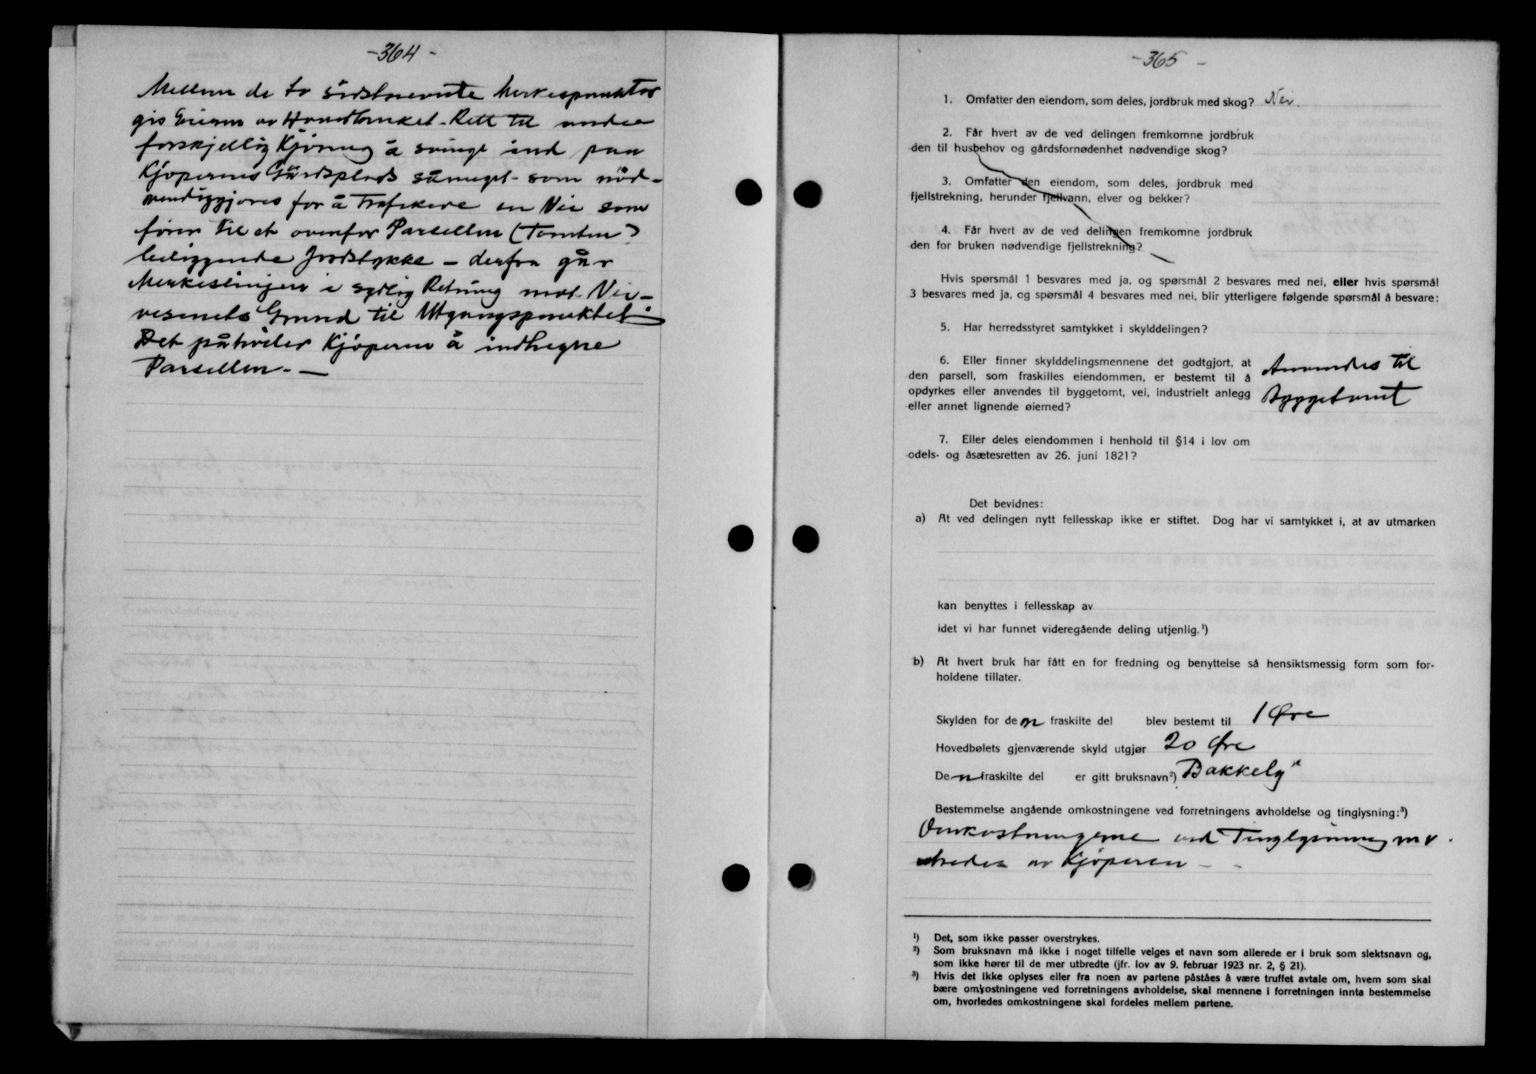 -364-
Mellem de to sidstnevnte Merkespunkter
gis Eieren av Hovedbruket Rett til under
forskjellig Kjøring å svinge ind paa
Kjøperens Gårdsplads såmeget som nød-
vendiggjøres for å Trafikere en Vei som
fører til et ovenfor Parsellen (Tomten)
beliggende Jordstykke – derfra går
Merkeslinjen i sydlig Retning mot Vei-
vesenets Grund til Utgangspunktet.
Det påhviler Kjøperen å indhegne
Parsellen. —
-365-
1. Omfatter den eiendom, som deles, jordbruk med skog? Nei.
2. Får hvert av de ved delingen fremkomne jordbruk
den til husbehov og gårdsfornødenhet nødvendige skog?
3. Omfatter den eiendom, som deles, jordbruk med
fjellstrekning, herunder fjellvann, elver og bekker?
4. Får hvert av de ved delingen fremkomne jordbruk
den for bruken nødvendige fjellstrekning?
Hvis spørsmål 1 besvares med ja, og spørsmål 2 besvares med nei, eller hvis spørsmål
3 besvares med ja, og spørsmål 4 besvares med nei, blir ytterligere følgende spørsmål å besvare:
5. Har herredsstyret samtykket i skylddelingen?
6. Eller finner skylddelingsmennene det godtgjort, at
den parsell, som fraskilles eiendommen, er bestemt til å
opdyrkes eller anvendes til byggetomt, vei, industrielt anlegg
eller annet lignende øiemed?
Anvendes til
Byggetomt
7. Eller deles eiendommen i henhold til §14 i lov om
odels- og åsætesretten av 26. juni 1821?
Det bevidnes:
a) At ved delingen nytt fellesskap ikke er stiftet. Dog har vi samtykket i, at av utmarken
kan benyttes i fellesskap av
idet vi har funnet videregående deling utjenlig.¹)
b) At hvert bruk har fått en for fredning og benyttelse så hensiktsmessig form som for-
holdene tillater.
Skylden for den fraskilte del blev bestemt til 1 Øre
Hovedbølets gjenværende skyld utgjør 20 Øre
Den fraskilte del er gitt bruksnavn²) Bakkely"
Bestemmelse angående omkostningene ved forretningens avholdelse og tinglysning:³)
Omkostningerne ved Tinglysning m v.
utredes av Kjøperen - -
¹) Det, som ikke passer overstrykes.
²) Som bruksnavn må ikke i noget tilfelle velges et navn som allerede er i bruk som slektsnavn og,
som ikke hører til de mer utbredte (jfr. lov av 9. februar 1923 nr. 2, § 21).
³) Hvis det ikke oplyses eller fra noen av partene påståes å være truffet avtale om, hvem som skal
bære omkostningene ved forretningens avholdelse, skal mennene i forretningen innta bestemmelse
om, hvorledes omkostningene skal fordeles mellem partene.